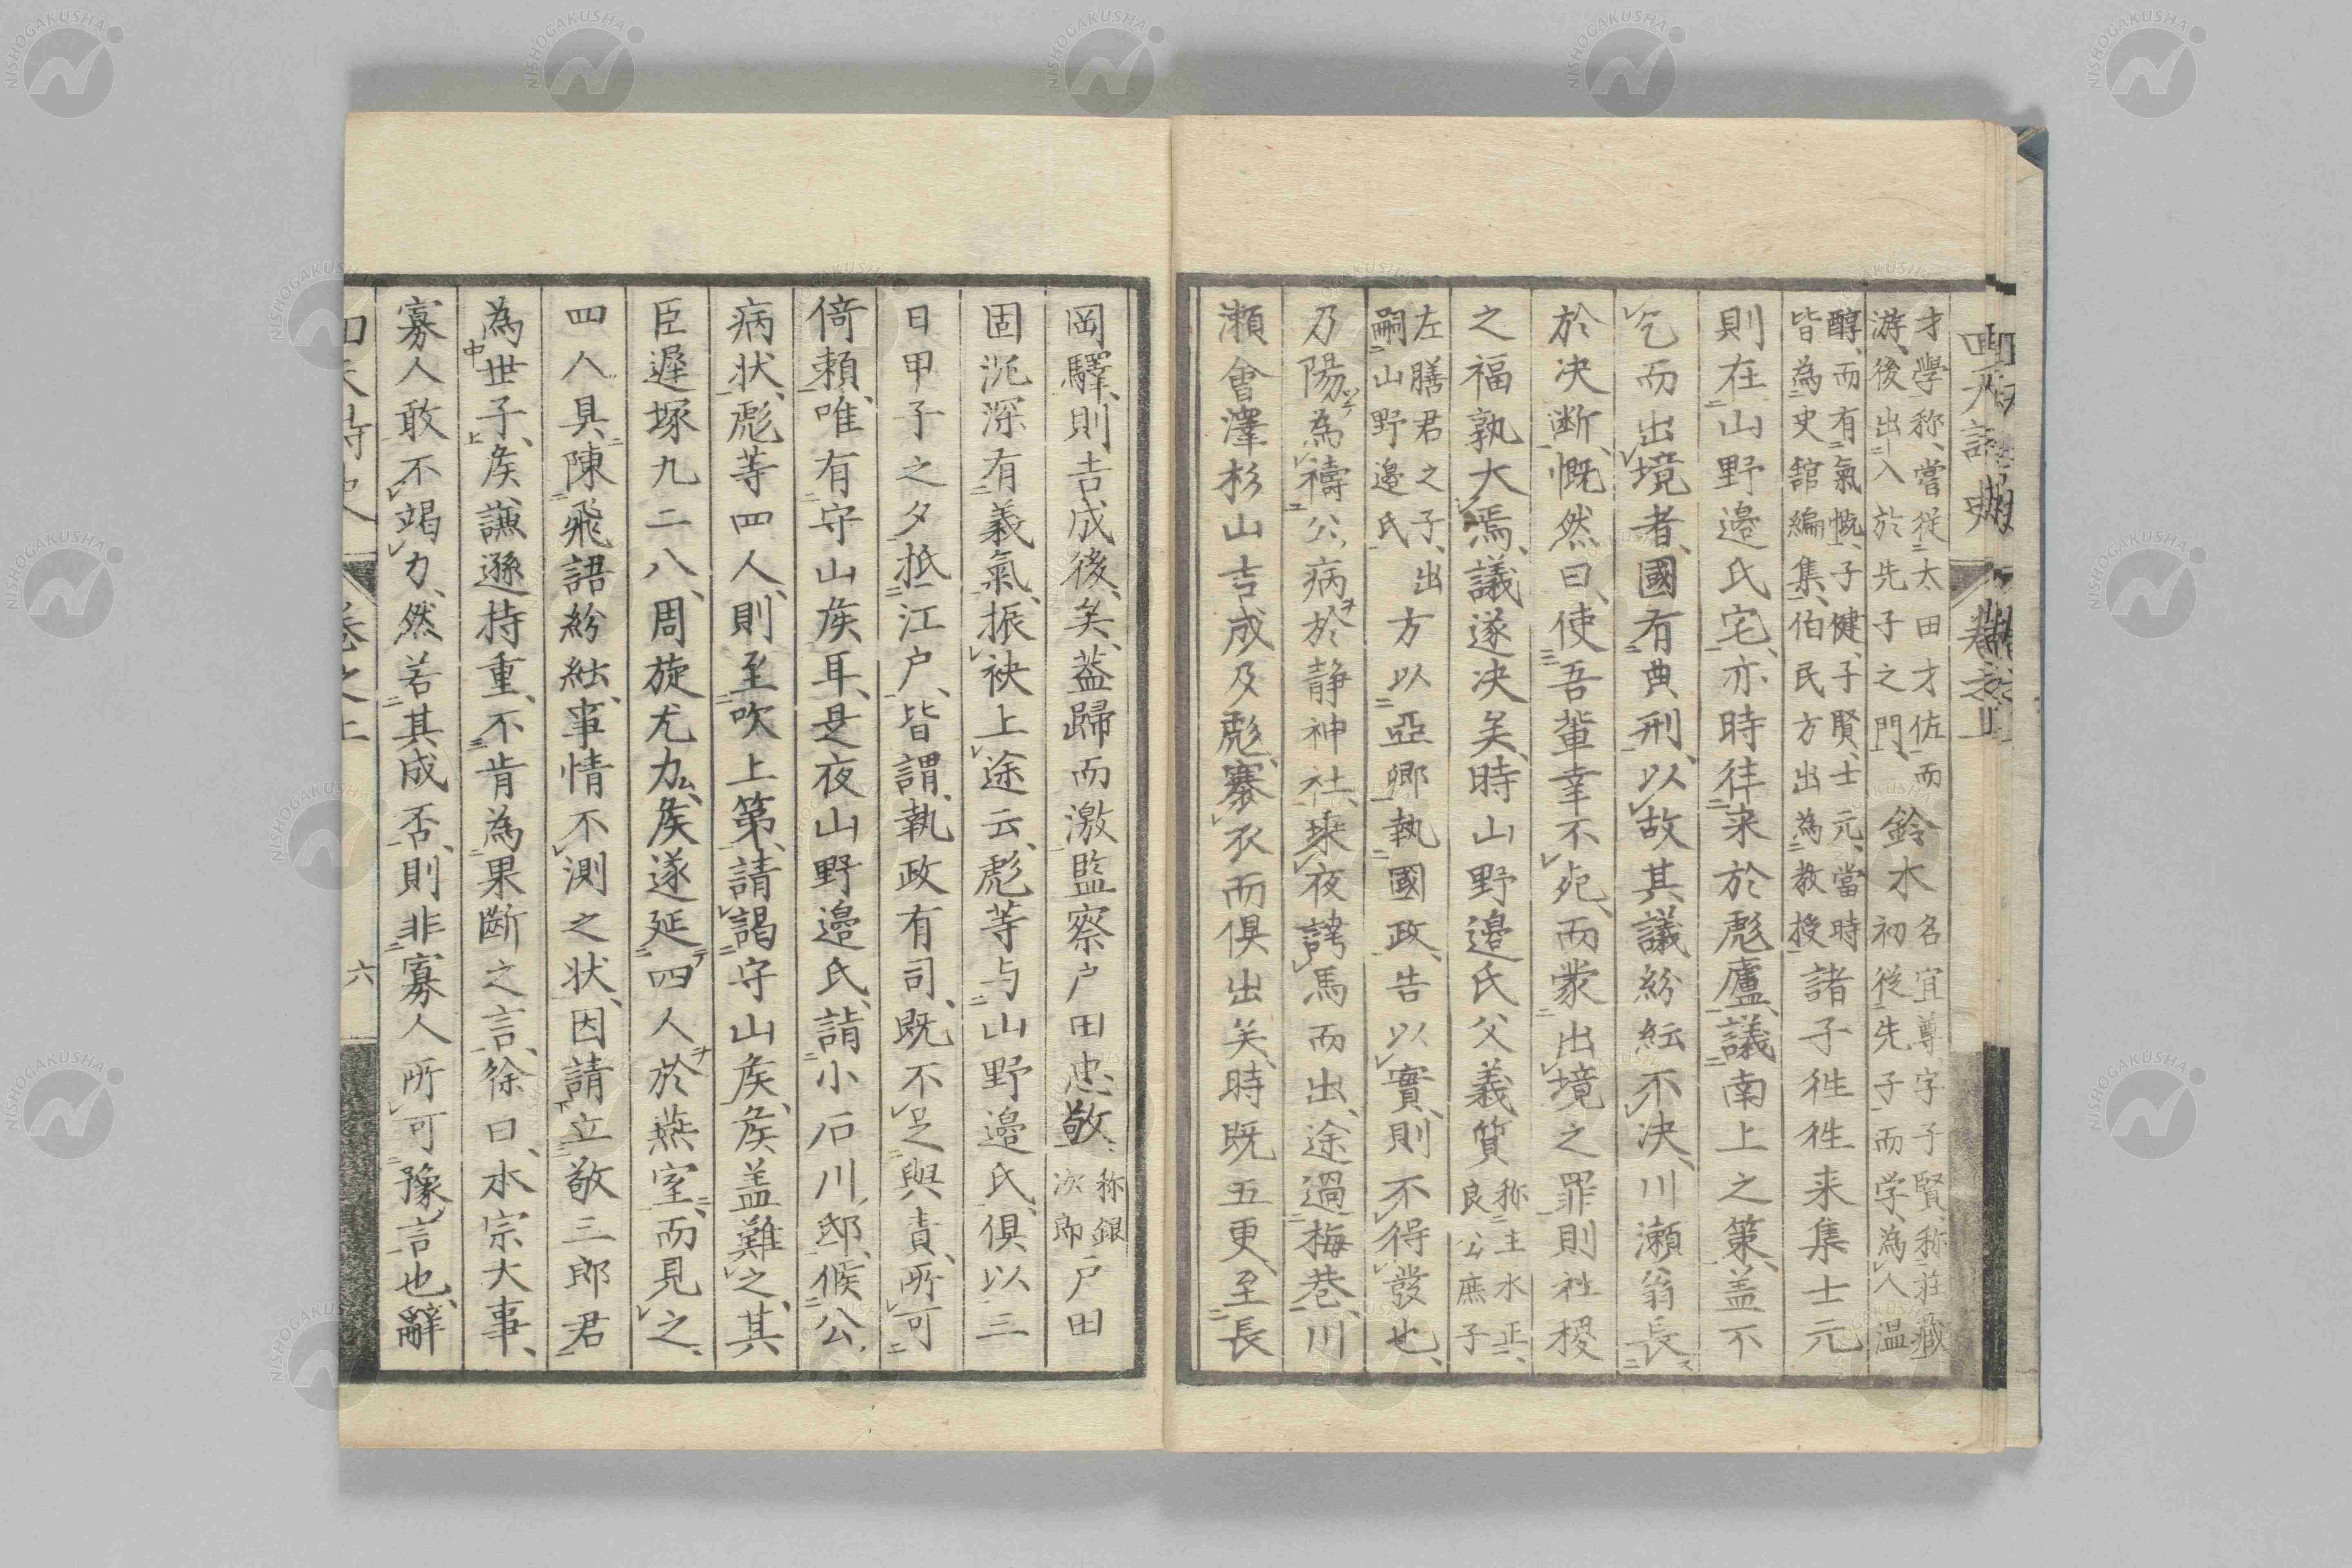 才學称、嘗従太田才佐而
游、後出入於先子之門、鈴木名宜尊字子賢、称莊蔵
初従先子而学、為人温
醇、而有氣慨、子健、子賢、士元、當時
皆為史舘編集、伯民方出為教授諸子徃徃来集士元
則在山野邉氏宅、亦時徃来於彪廬、議南上之策、盖不
乞而出境者、國有典刑、以故其議紛紜不决、川瀬翁長
於决断、慨然曰、使吾輩幸不死、而蒙出境之罪則社稷
之福孰大焉、議遂决矣、時山野邉氏父義質称主水正、
良公庶子
左膳君之子、出
嗣山野邉氏方以亞卿執國政、告以實、則不得發也、
乃陽為禱公病於静神社、乗夜誇馬而出、途過梅巷、川
瀬會澤杉山吉成及彪、褰衣而俱出矣、時既五更、至長
岡驛、則吉成後矣、葢歸而激監察戸田忠敬称銀
次郎戸田
固沉深有義氣、振袂上途云、彪等与山野邉氏、俱以三
日甲子之夕、抵江戸、皆謂、執政有司、既不足與責、所可
倚頼、唯有守山矦耳、是夜山野邉氏、詣小石川邸、候公
病状、彪等四人、則至吹上第、請謁守山矦、矦盖難之、其
臣遲塚九二八、周旋尤力、矦遂延四人於燕室、而見之、
四人具陳飛語紛紜、事情不測之状、因請立敬三郎君
為世子、矦謙遜持重、不肯為果断之言、徐曰、水宗大事、
寡人敢不竭力、然若其成否、則非寡人所可豫言也、辭
六